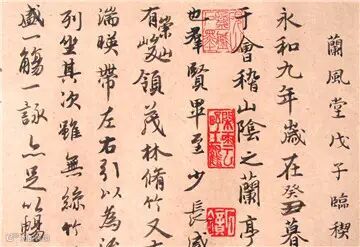 蘭風堂戊子臨稧
永和九年歲在癸丑暮
于會稽山陰之蘭亭
也羣賢畢至少長咸
有崇山峻領茂林脩竹又
湍暎帶左右引以為
列坐其次雖無絲竹
盛一觴一詠亦足以暢